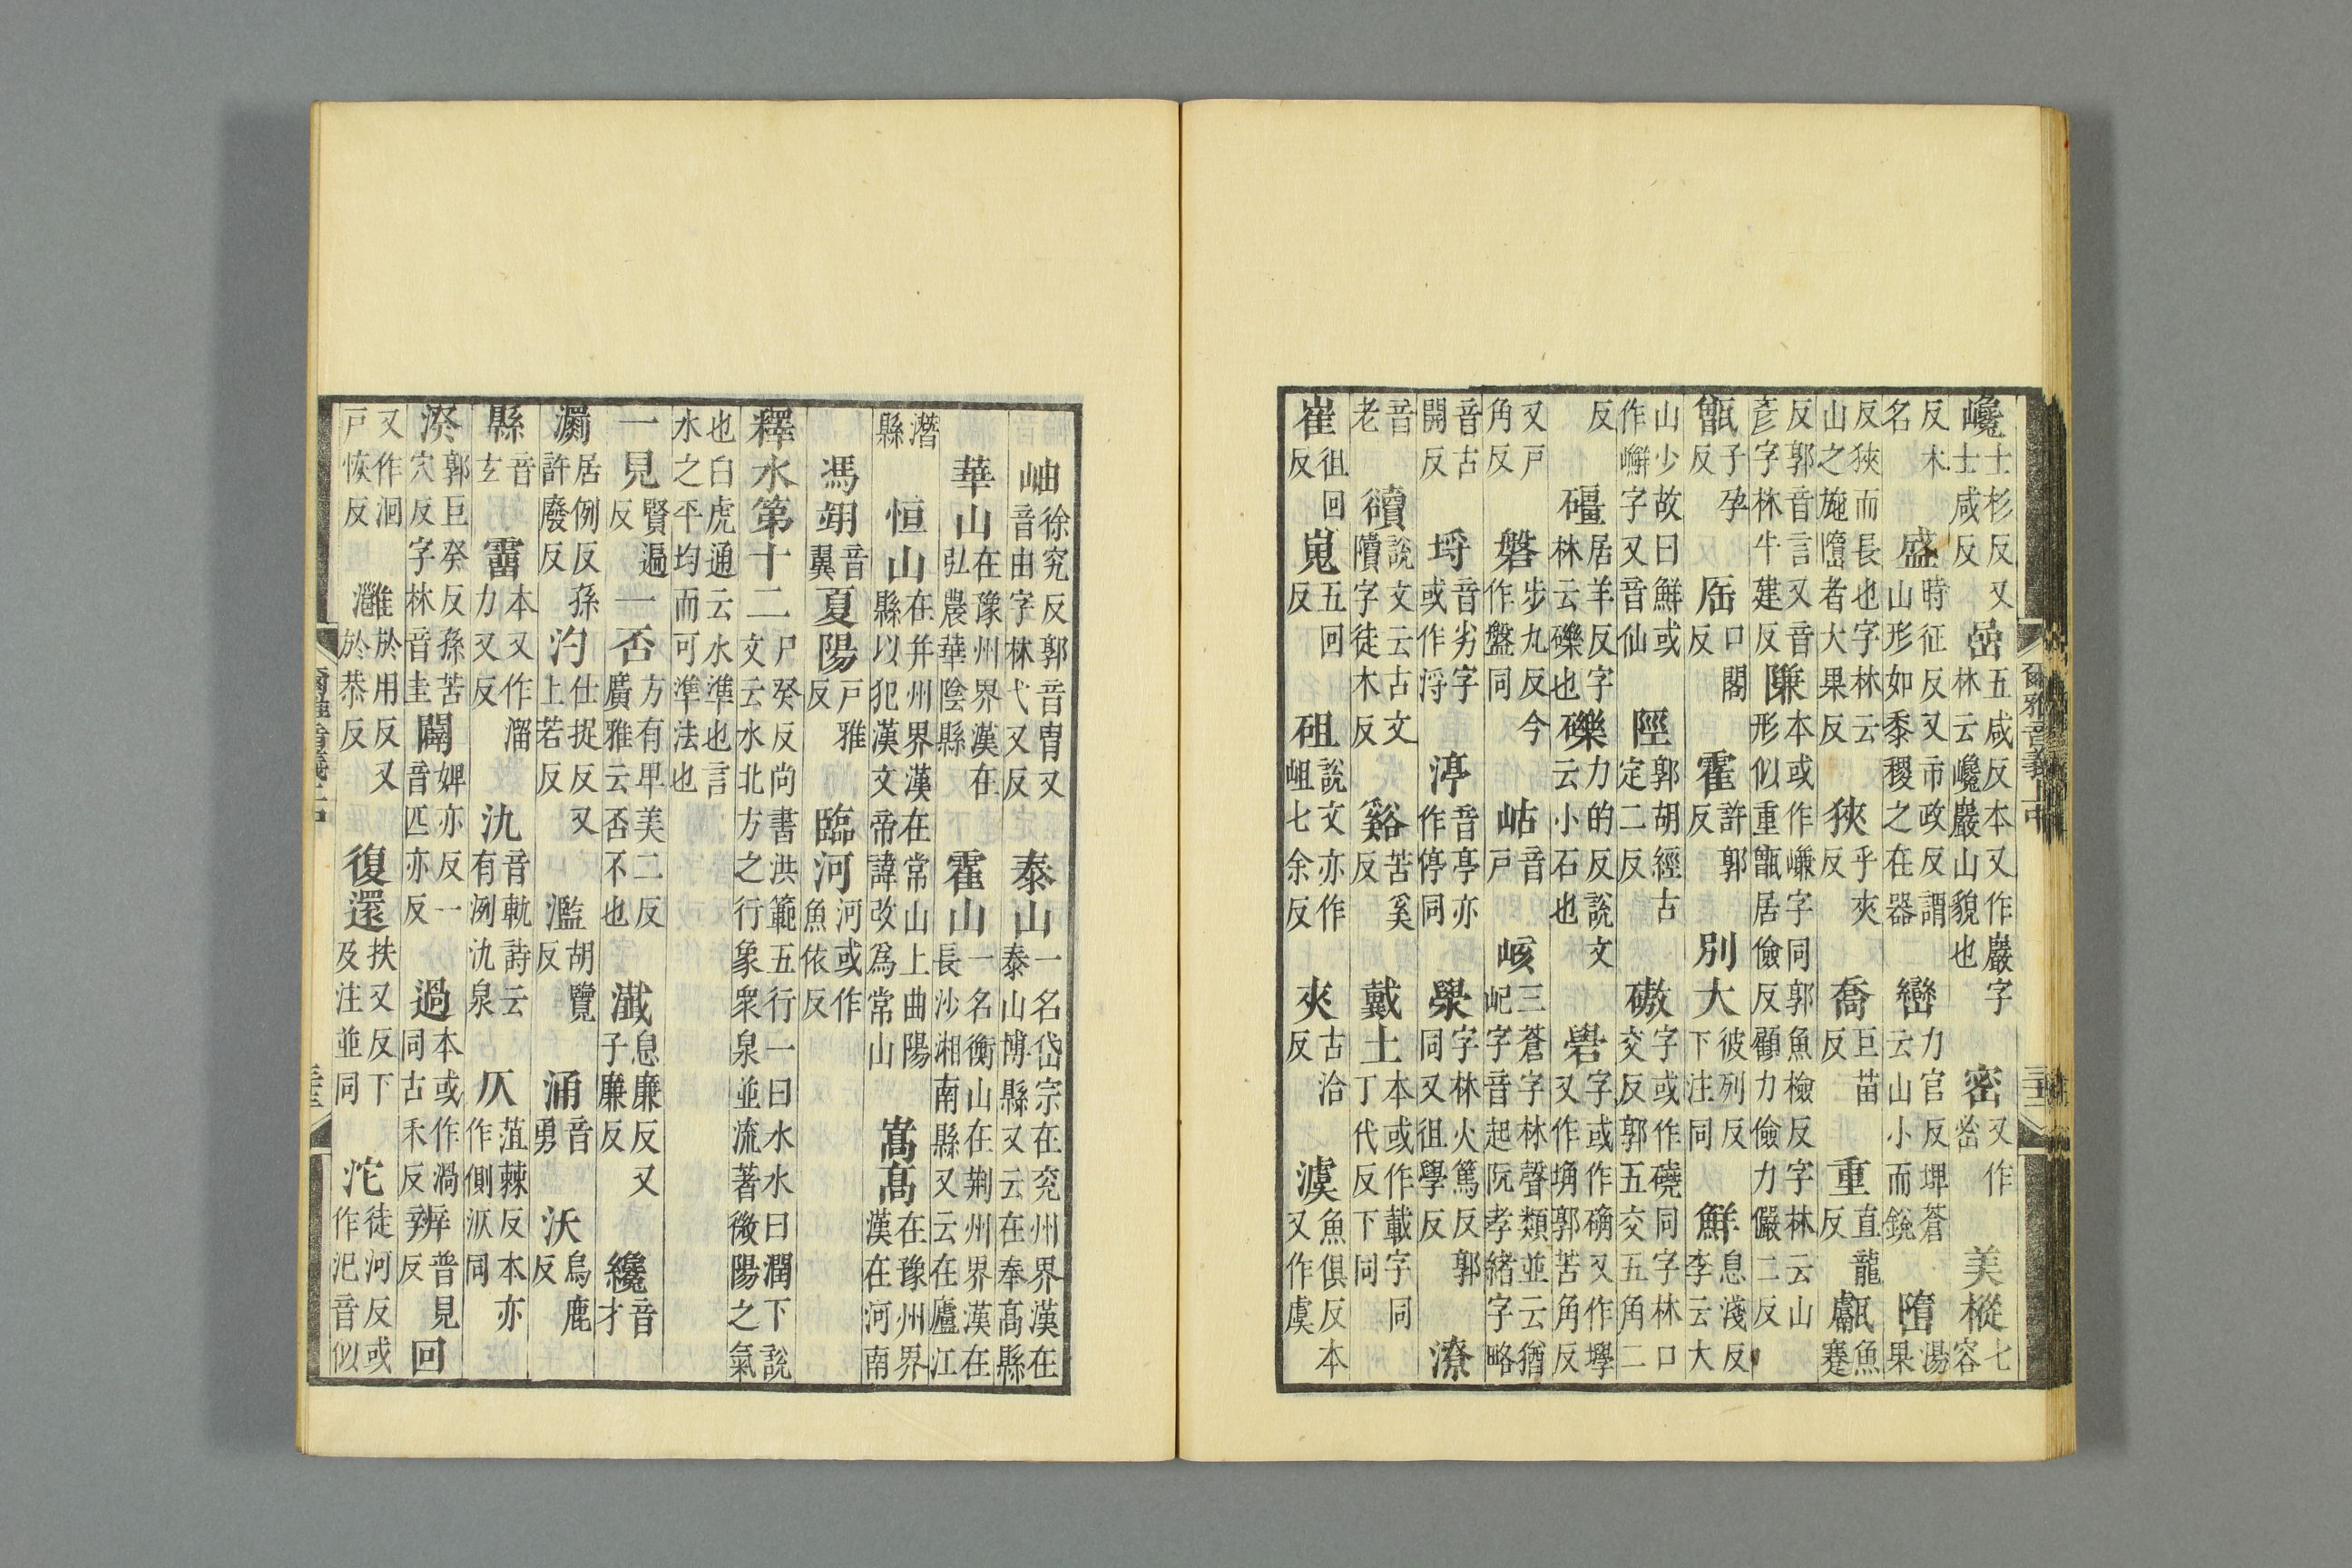 巉士杉反又士咸反嵒五咸反本又作巖字林云巉巖山貌也密又作峚美樅七容
反木名盛時征反又市政反謂山形如黍稷之在器巒力官反埤蒼云山小而銳嶞湯果
反狹而長也字林云山之施嶞者大果反狹乎夾反喬巨苗反重直龍反甗魚蹇
反郭音言又音彥字林牛建反隒本或作嵰字同郭魚檢反字林云山形似重甑居儉反顧力儉力儼二反
甑子孕反㕎口閤反霍許郭反別大彼列反下注同鮮息淺反李云大
山少故曰鮮或作嶰字又音仙陘郭胡經古定二反磝字或作磽同字林口交反郭五交五角二
反礓居羊反字林云礫也礫力的反說文云小石也礐字或作确又作㙾又作埆郭苦角反
又戶角反磐步九反今作盤同岵音戶峐三蒼字林聲類並云猶屺字音起阮孝緒字略
音古開反埒音劣字或作浖渟音亭亦作停同澩字林火篤反郭同又徂學反潦
音老說文云古文字徒木反谿苦奚反戴土本或作載字同丁代反下同
崔徂回反嵬五回反砠說文亦作岨七余反夾古洽反澞魚俱反本又作虞
爾雅音義上中
三十二
岫徐究反郭音胄又音由字林弋又反泰山一名岱宗在兖州界漢在泰山博縣又云在奉高縣
華山在豫州界漢在弘農華陰縣霍山一名衡山在荆州界漢在長沙湘南縣又云在廬江
灊縣恒山在并州界漢在常山上曲陽縣以犯漢文帝諱改爲常山嵩高在豫州界漢在河南
馮翊音翼夏陽戶雅反臨河河或作魚依反
釋水第十二尸癸反尚書洪範五行一曰水水曰潤下說文云水北方之行象衆泉並流著微陽之氣
也白虎通云水準也言水之平均而可準法也
一見賢遍反一否方有甲美二反廣雅云否不也瀸息廉反又子廉反纔音才
瀱居例反孫許廢反汋仕捉反又上若反濫胡覽反涌音勇沃烏鹿反
縣音玄霤本又作溜力又反氿音軌詩云有冽氿泉仄菹棘反本亦作側汳同
湀郭巨癸反孫苦穴反字林音圭闢婢亦反一音匹亦反過本或作渦同古禾反辨普見反回
又作洄戶恢反灉於用反又於恭反復還扶又反下及注並同沱徒河反或作汜音似